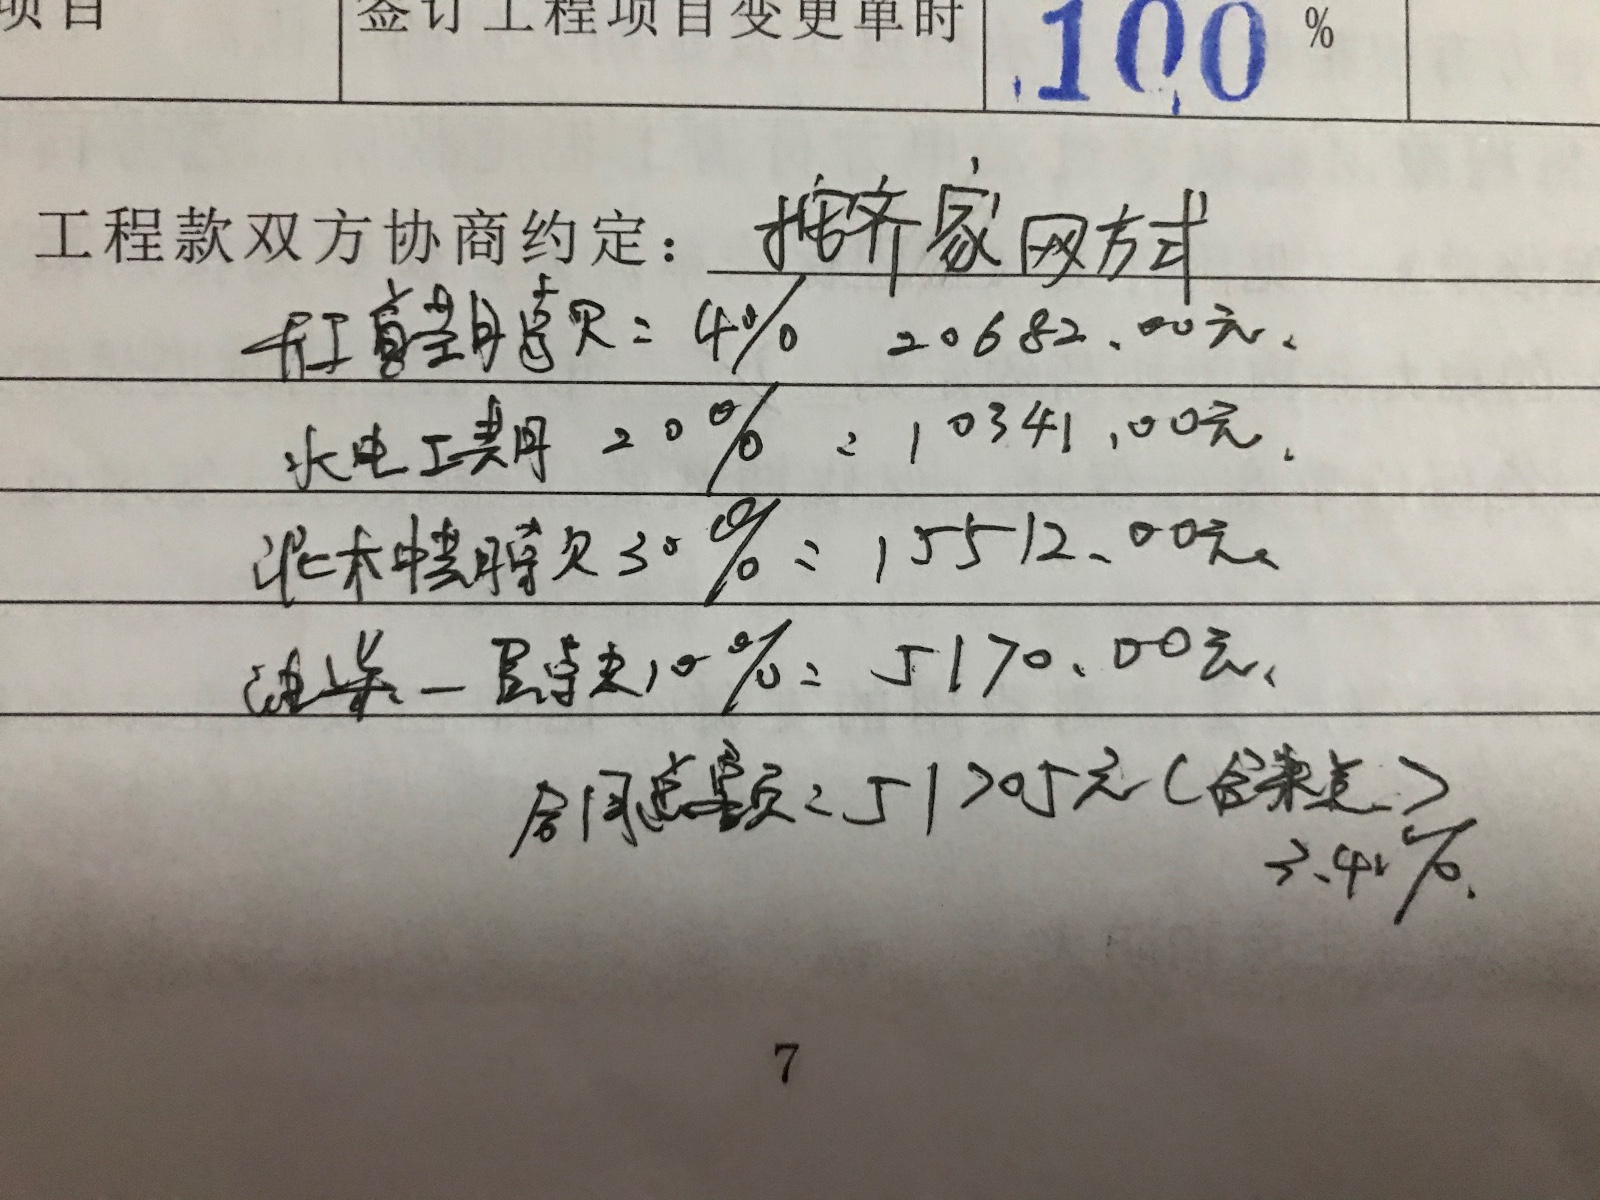 项目 签订工程项目变更单时 100 %
工程款双方协商约定: 按齐家网方式
开工 = 4% 20682.00元.
水电工 20% = 10341.00元.
泥木 30% = 15512.00元.
油漆 10% = 5170.00元.
合同总 = 51705元(含税点)
3.41%.
7